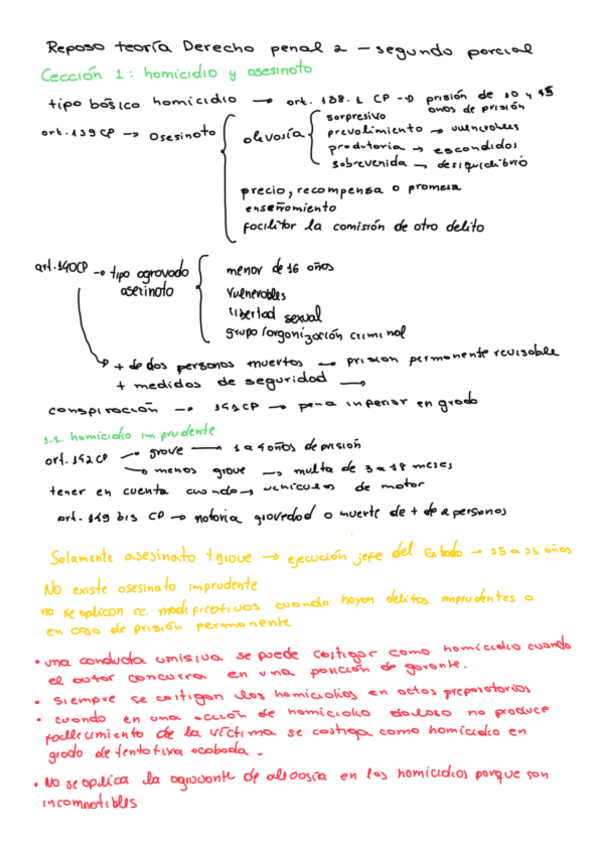 Repaso teoría Derecho penal 2 – segundo parcial
Cección 1: homicidio y asesinato
tipo básico homicidio → art. 138.1 CP → prisión de 10 y 15 años de prisión
art. 139 CP → asesinato
alevosía
sorpresivo
prevalimiento → vulnerables
proditoria → escondidos
sobrevenida → desiquilibrio
precio, recompensa o promesa
enseñamiento
facilitar la comisión de otro delito
art. 140CP → tipo agravado asesinato
menor de 16 años
vulnerables
libertad sexual
grupo/organización criminal
+ de dos personas muertas → prision permanente revisable
+ medidas de seguridad →
conspiración → 141CP → pena inferior en grado
1.1. homicidio imprudente
art. 142CP → grave → 1 a 4 años de prisión
→ menos grave → multa de 3 a 18 meses
tener en cuenta cuando → vehículos de motor
art. 142 bis CP → notoria gravedad o muerte de + de 2 personas
Solamente asesinato + grave → ejecución jefe del Estado →
No existe asesinato imprudente
no se aplican cc. modificativas cuando hayan delitos imprudentes o
en caso de prisión permanente
• una conducta omisiva se puede castigar como homicidio cuando
el autor concurra en una posición de garante.
• siempre se castigan los homicidios en actos preparatorios
• cuando en una acción de homicidio doloso no produce
fallecimiento de la víctima se castiga como homicidio en
grado de tentativa acabada.
• No se aplica la agravante de alevosía en los homicidios porque son
incompatibles